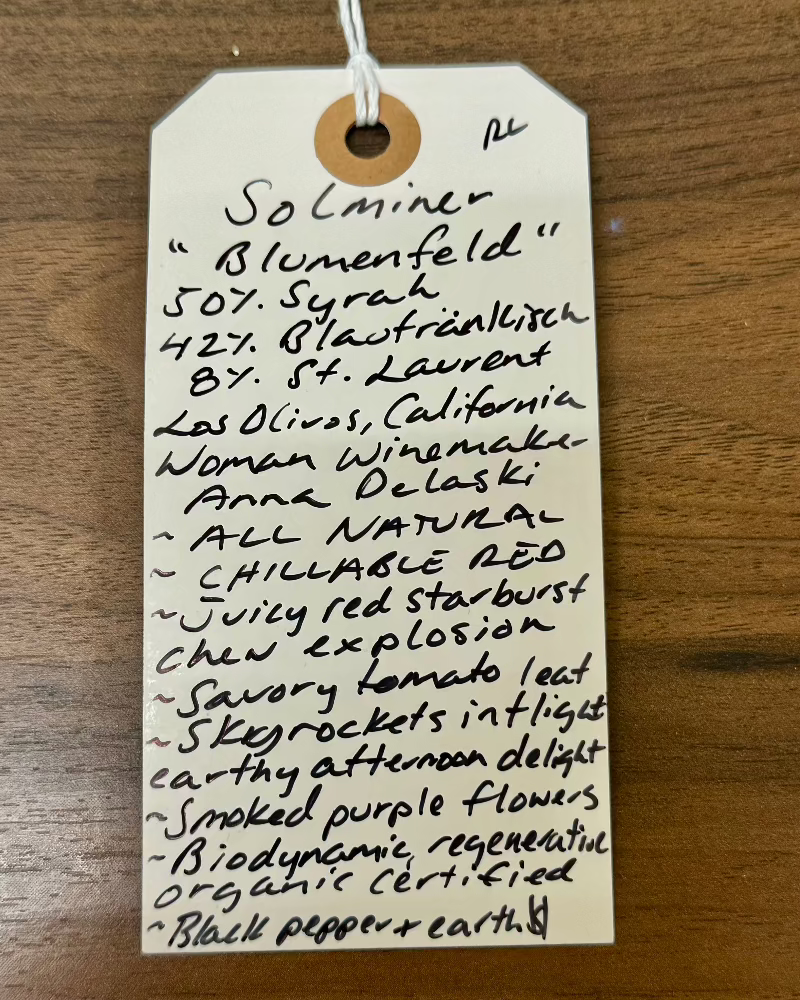 RL
Solminer
"Blumenfeld"
50% Syrah
42% Blaufränkisch
8% St. Laurent
Los Olivos, California
Woman Winemaker
Anna Delaski
~ ALL NATURAL
~ CHILLABLE RED
~Juicy red starburst
chew explosion
~Savory tomato leaf
~Skyrockets in flight
earthy afternoon delight
~Smoked purple flowers
~Biodynamic, regenerative
organic certified
~Black pepper + earth